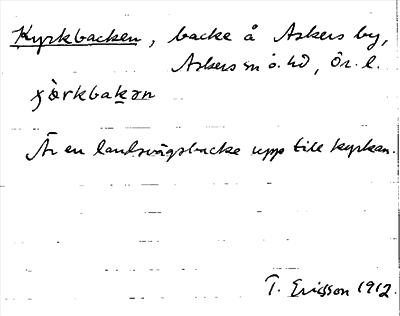 Kyrkbacken, backe å Askers by,
Askers sn o. hd, Ör. l.
χòrkbakan
Är en landsvägsbacke upp till kyrkan.
T. Ericsson 1912.